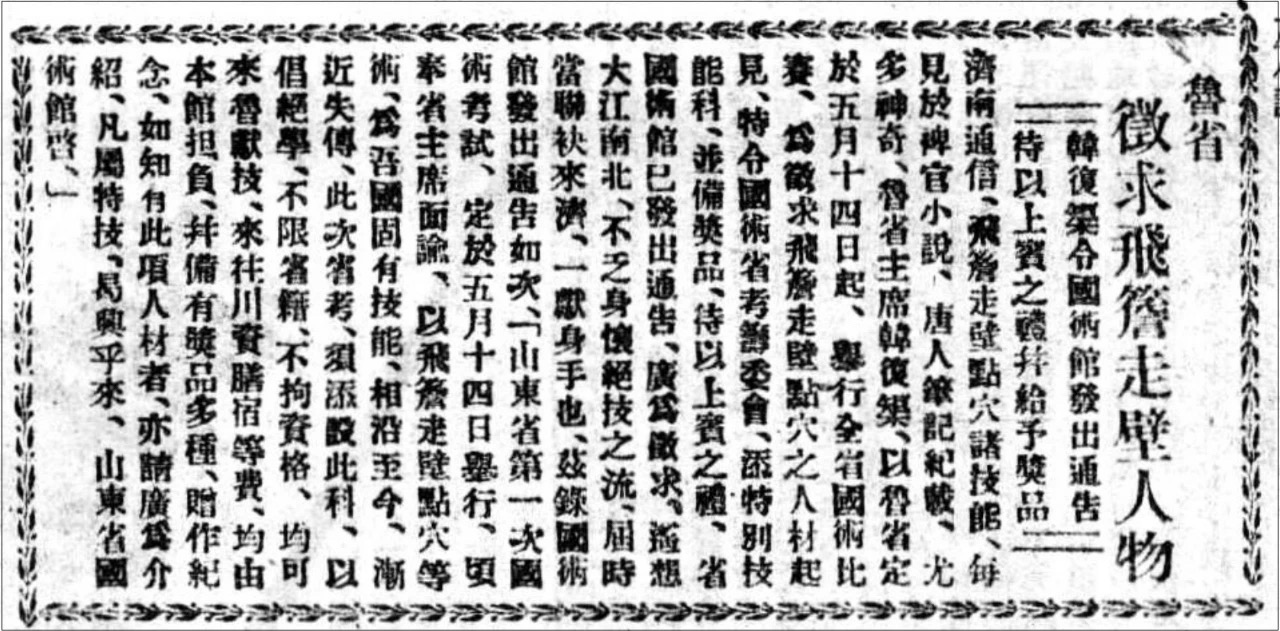 魯省
徵求飛簷走壁人物
韓復榘令國術館發出通告
待以上賓之禮幷給予獎品
濟南通信、飛簷走壁點穴諸技能、每
見於稗官小說、唐人筆記紀載、尤
多神奇、魯省主席韓復榘、以魯省定
於五月十四日起、舉行全省國術比
賽、爲徵求飛簷走壁點穴之人材起
見、特令國術省考籌委會、添特別技
能科、並備獎品、待以上賓之禮、省
國術館已發出通告、廣爲徵求、遙想
大江南北、不乏身懷絕技之流、屆時
當聯袂來濟、一獻身手也、茲錄國術
館發出通告如次、「山東省第一次國
術考試、定於五月十四日舉行、頃
奉省主席面諭、以飛簷走壁點穴等
術、爲吾國固有技能、相沿至今、漸
近失傳、此次省考、須添設此科、以
倡絕學、不限省籍、不拘資格、均可
來魯獻技、來往川資膳宿等費、均由
本館担負、幷備有獎品多種、贈作紀
念、如知有此項人材者、亦請廣爲介
紹、凡屬特技、曷興乎來、山東省國
術館啓、」